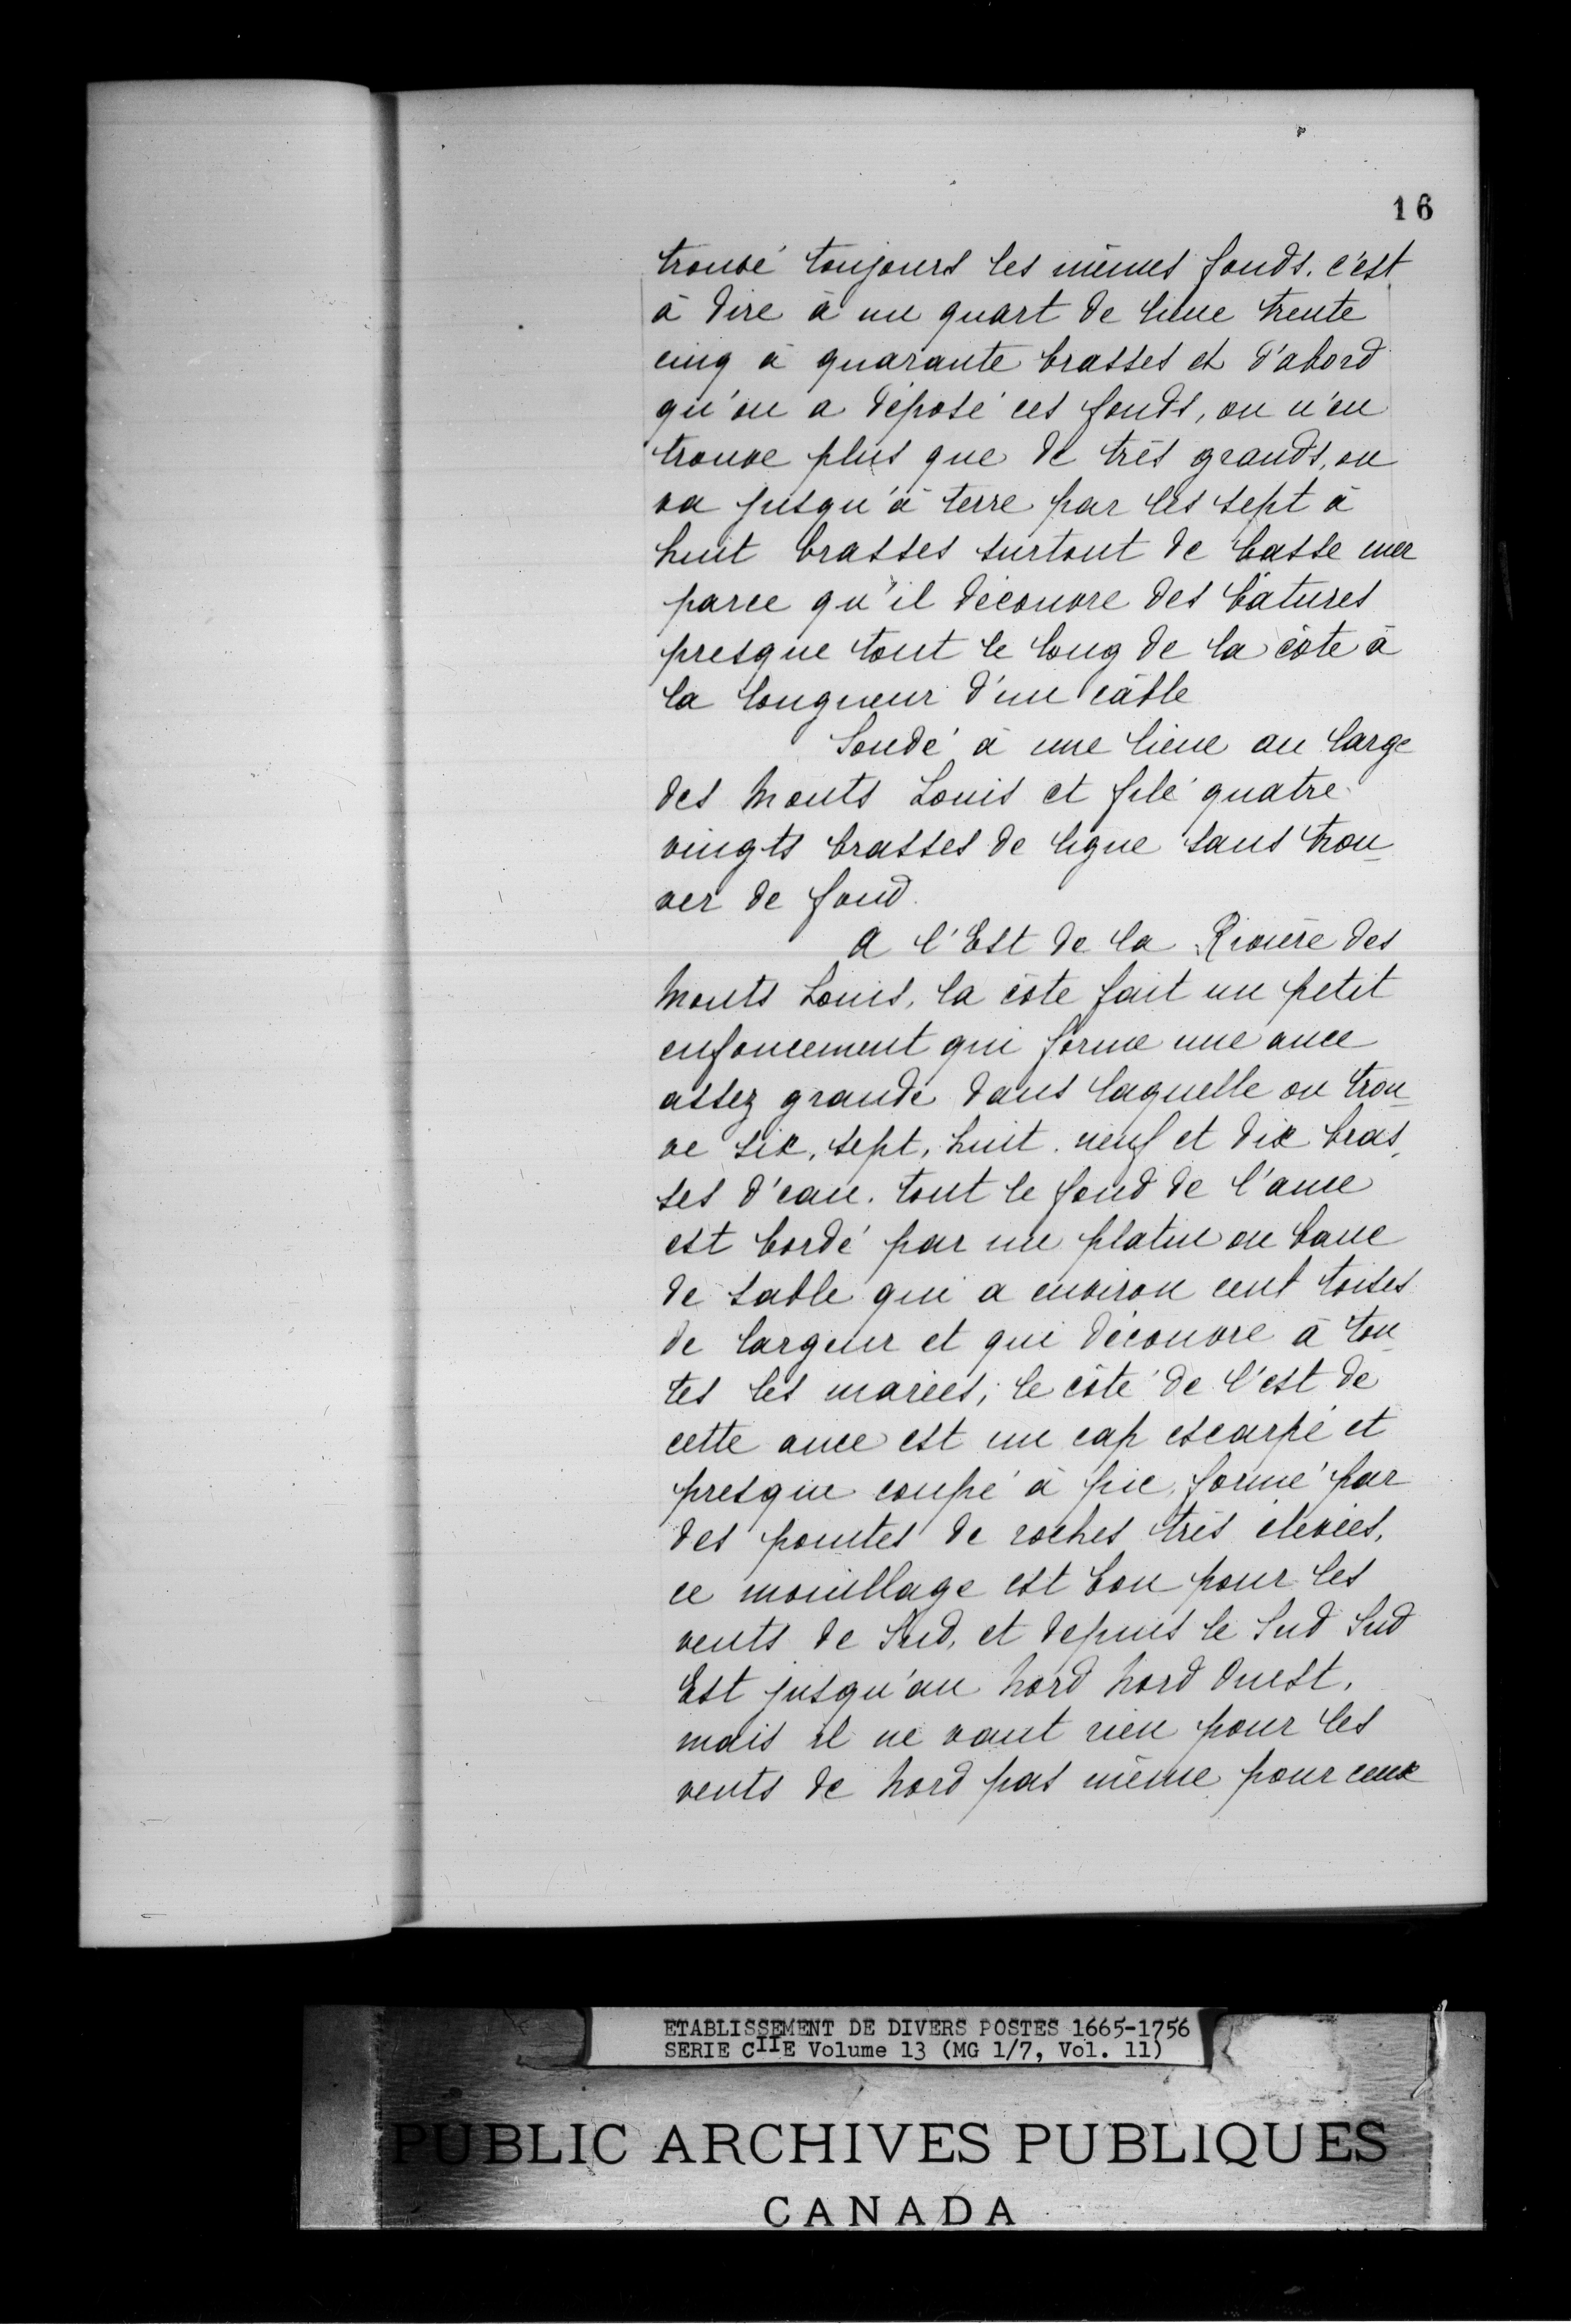 16
trouvé toujours les mêmes fonds, c'est
à dire à un quart de lieue trente
cinq à quarante brasses et d'abord
qu'on a déposé ces fonds, on n'en
trouve plus que de très grands, on
va jusqu'à terre par les sept à
huit brasses surtout de basse mer
parce qu'il découvre des bâtures
presque tout le long de la côte à
la longueur d'un câble
Sondé à une lieue au large
des Monts Louis et filé quatre
vingts brasses de ligne sans trou-
ver de fond.
A l'Est de la Rivière des
Monts Louis, la côte fait un petit
enfoncement qui forme une ance
assez grande dans laquelle on trou-
ve six, sept, huit, neuf et dix bras-
ses d'eau. tout le fond de l'ance
est bordé par un platin ou banc
de sable qui a environ cent toises
de largeur et qui découvre à tou-
tes les marées; le côté de l'est de
cette ance est un cap escarpé et
presque coupé à pic, formé par
des pointes de roches très élevées,
ce mouillage est bon pour les
vents de Sud, et depuis le Sud Sud
Est jusqu'au Nord Nord Ouest,
mais il ne vaut rien pour les
vents de Nord pas même pour ceux
ETABLISSEMENT DE DIVERS POSTES 1665-1756
SERIE CIIE Volume 13 (MG 1/7, Vol. 11)
PUBLIC ARCHIVES PUBLIQUES
CANADA